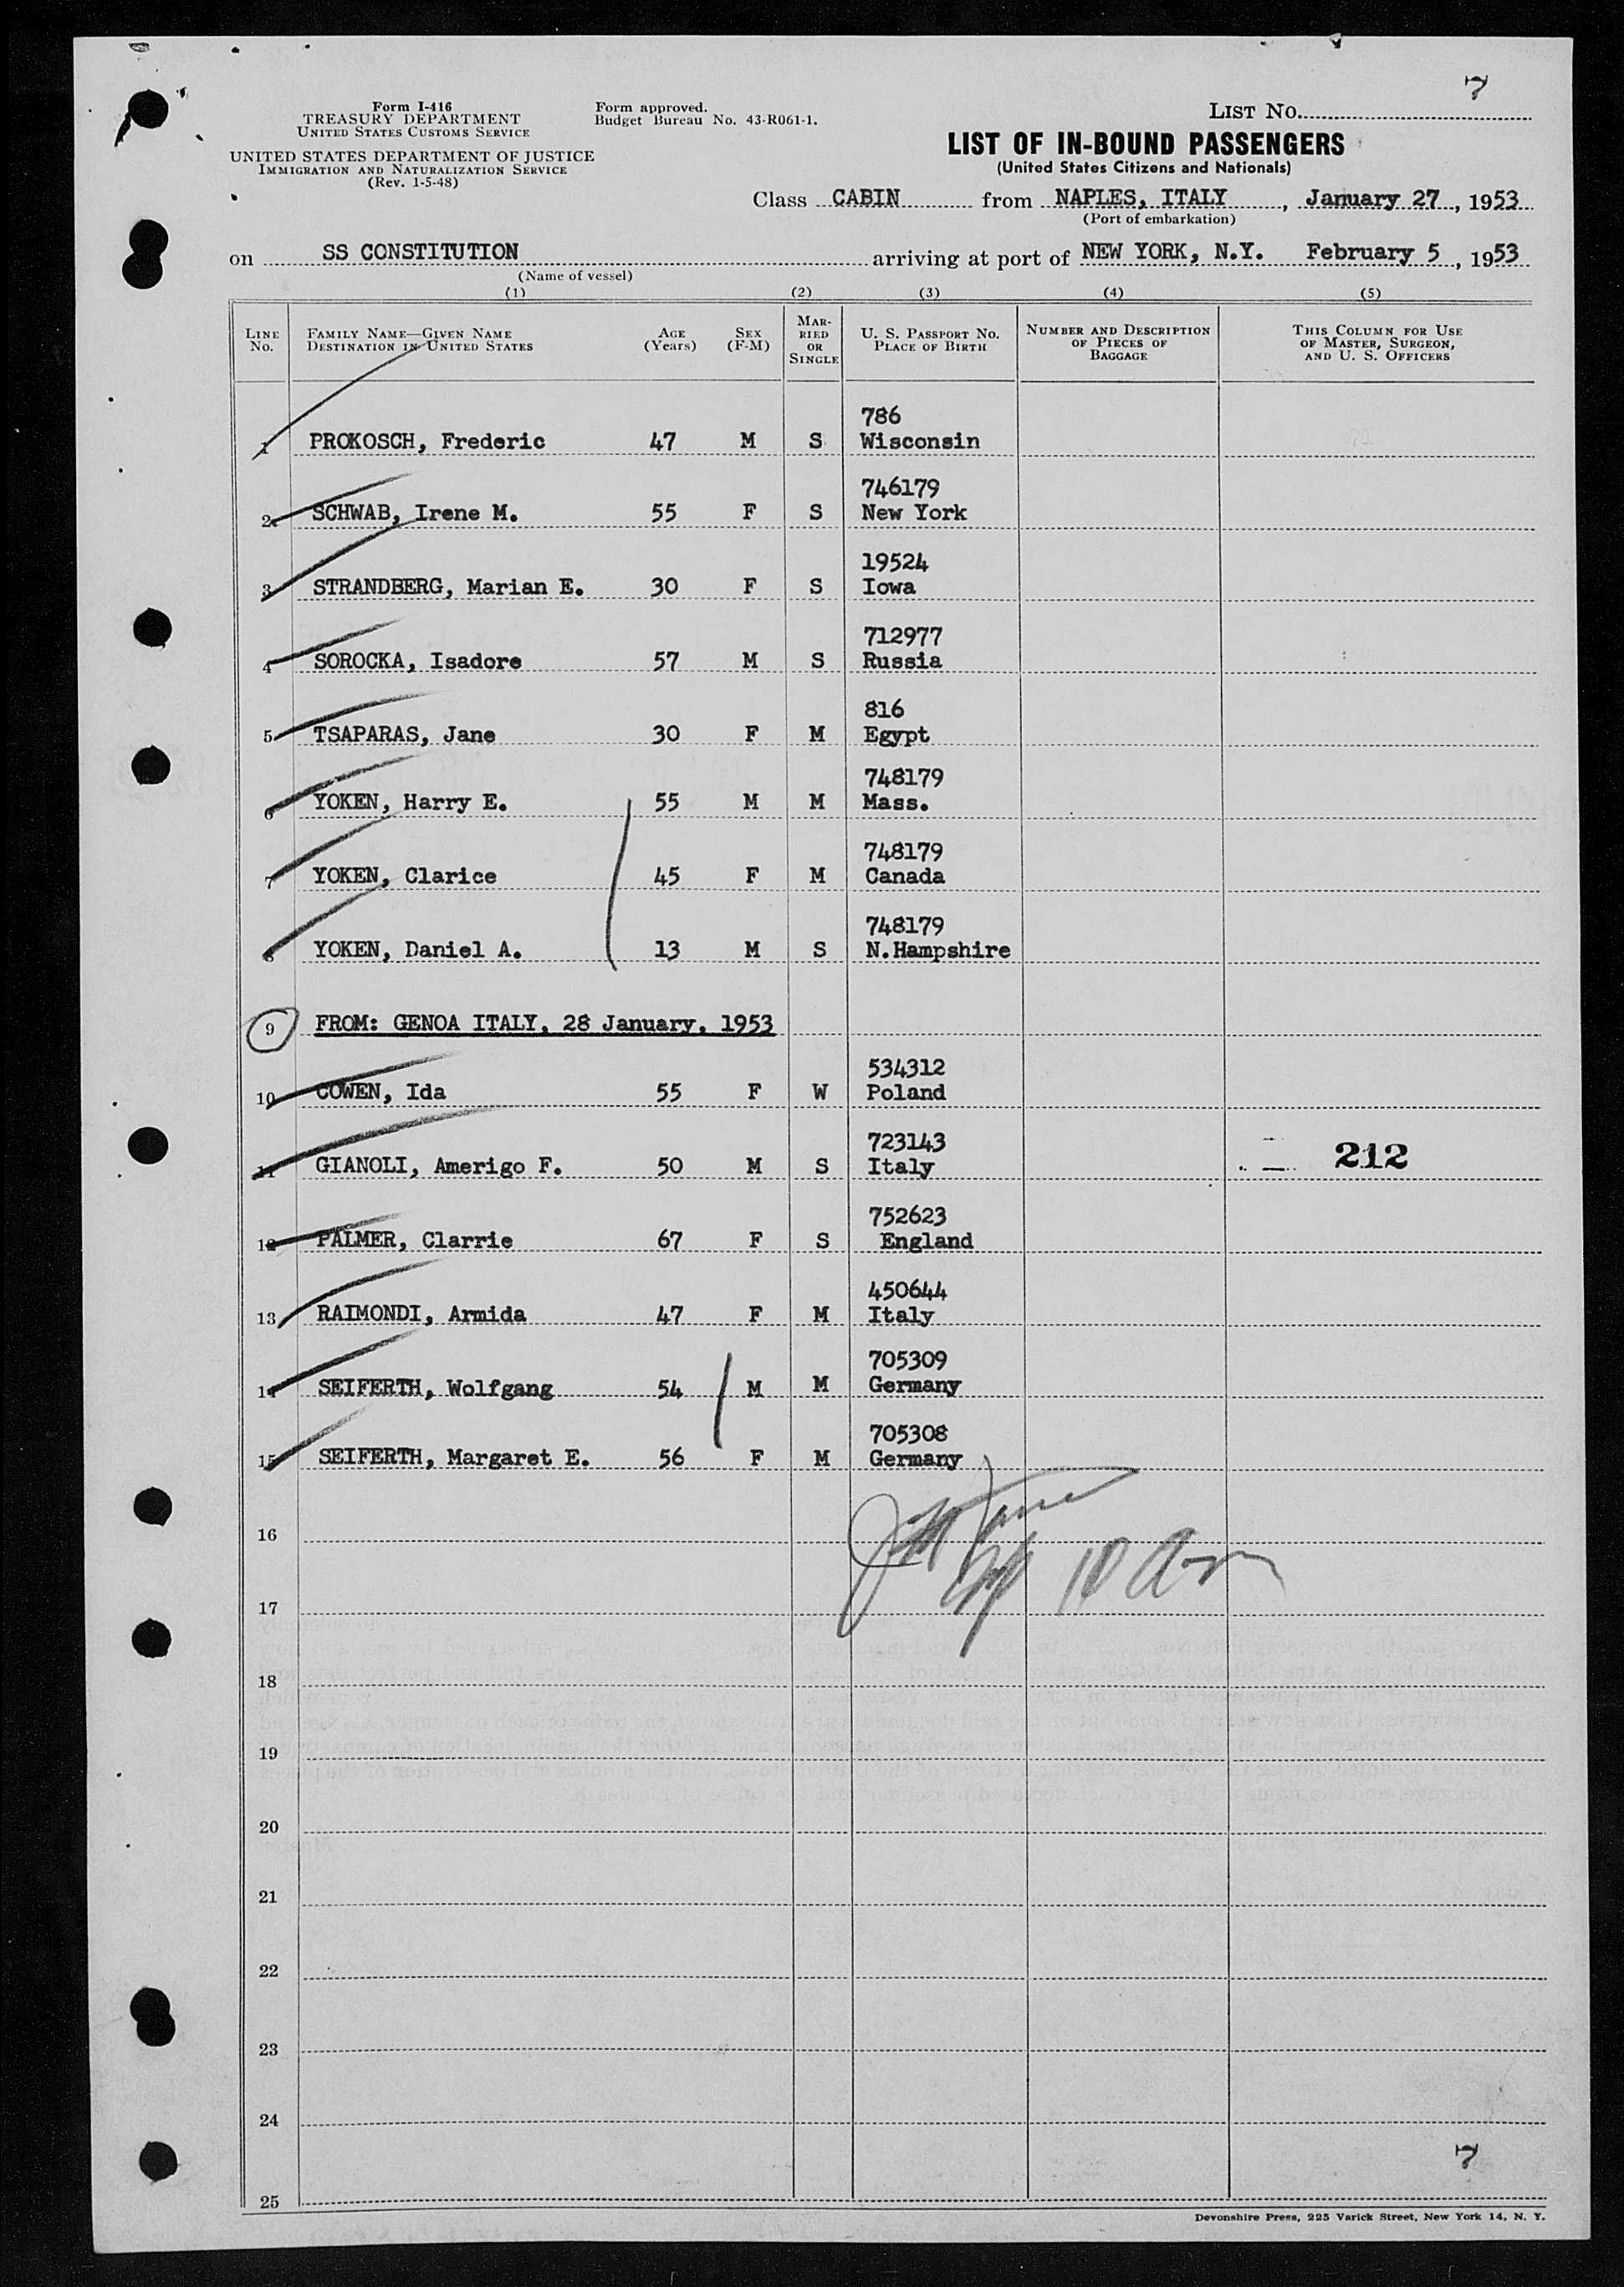 7
Form I-416
TREASURY DEPARTMENT
UNITED STATES CUSTOMS SERVICE
UNITED STATES DEPARTMENT OF JUSTICE
IMMIGRATION AND NATURALIZATION SERVICE
(Rev. 1-5-48)
Form approved.
Budget Bureau No. 43-R061-1.
LIST NO.
LIST OF IN-BOUND PASSENGERS
(United States Citizens and Nationals)
Class CABIN from NAPLES, ITALY, January 27, 1953
(Port of embarkation)
on SS CONSTITUTION arriving at port of NEW YORK, N.Y. February 5, 1953
(Name of vessel)
(1) (2) (3) (4) (5)
LINE NO. FAMILY NAME—GIVEN NAME DESTINATION IN UNITED STATES AGE (Years) SEX (F-M) MARRIED OR SINGLE U. S. PASSPORT NO. PLACE OF BIRTH NUMBER AND DESCRIPTION OF PIECES OF BAGGAGE THIS COLUMN FOR USE OF MASTER, SURGEON, AND U. S. OFFICERS
786
1 PROKOSCH, Frederic 47 M S Wisconsin
746179
2 SCHWAB, Irene M. 55 F S New York
19524
3 STRANDBERG, Marian E. 30 F S Iowa
712977
4 SOROCKA, Isadore 57 M S Russia
816
5 TSAPARAS, Jane 30 F M Egypt
748179
6 YOKEN, Harry E. 55 M M Mass.
748179
7 YOKEN, Clarice 45 F M Canada
748179
8 YOKEN, Daniel A. 13 M S N.Hampshire
9 FROM: GENOA ITALY, 28 January, 1953
534312
10 COWEN, Ida 55 F W Poland
723143
11 GIANOLI, Amerigo F. 50 M S Italy 212
752623
12 PALMER, Clarrie 67 F S England
450644
13 RAIMONDI, Armida 47 F M Italy
705309
14 SEIFERTH, Wolfgang 54 M M Germany
705308
15 SEIFERTH, Margaret E. 56 F M Germany
16
17
18
19
20
21
22
23
24
7
25
Devonshire Press, 225 Varick Street, New York 14, N. Y.